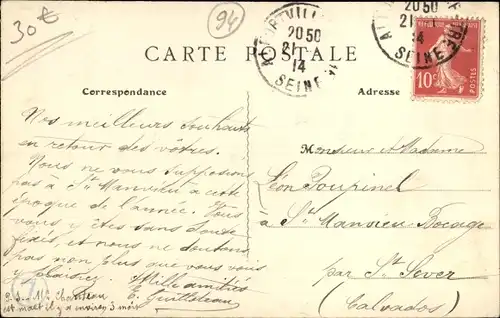 30€
94
ALFORTVILLE
20 50
21
14
SEINE
20 50
21
14
SEINE
10c
POSTES
CARTE POSTALE
Correspondance
Adresse
Nos meilleurs souhaits
en retour des vôtres.
Nous ne vous supposions
pas à St Manvieu à cette
époque de l'année. Vous
vous y êtes sans doute
fixés, et nous ne doutons
pas non plus que vous vous
y plaisiez. Mille amitiés
P.S. Mr
est mort il y a environ 3 mois
Monsieur et Madame
Léon Poupinel
à St Manvieu Bocage
par St Sever
(Calvados)